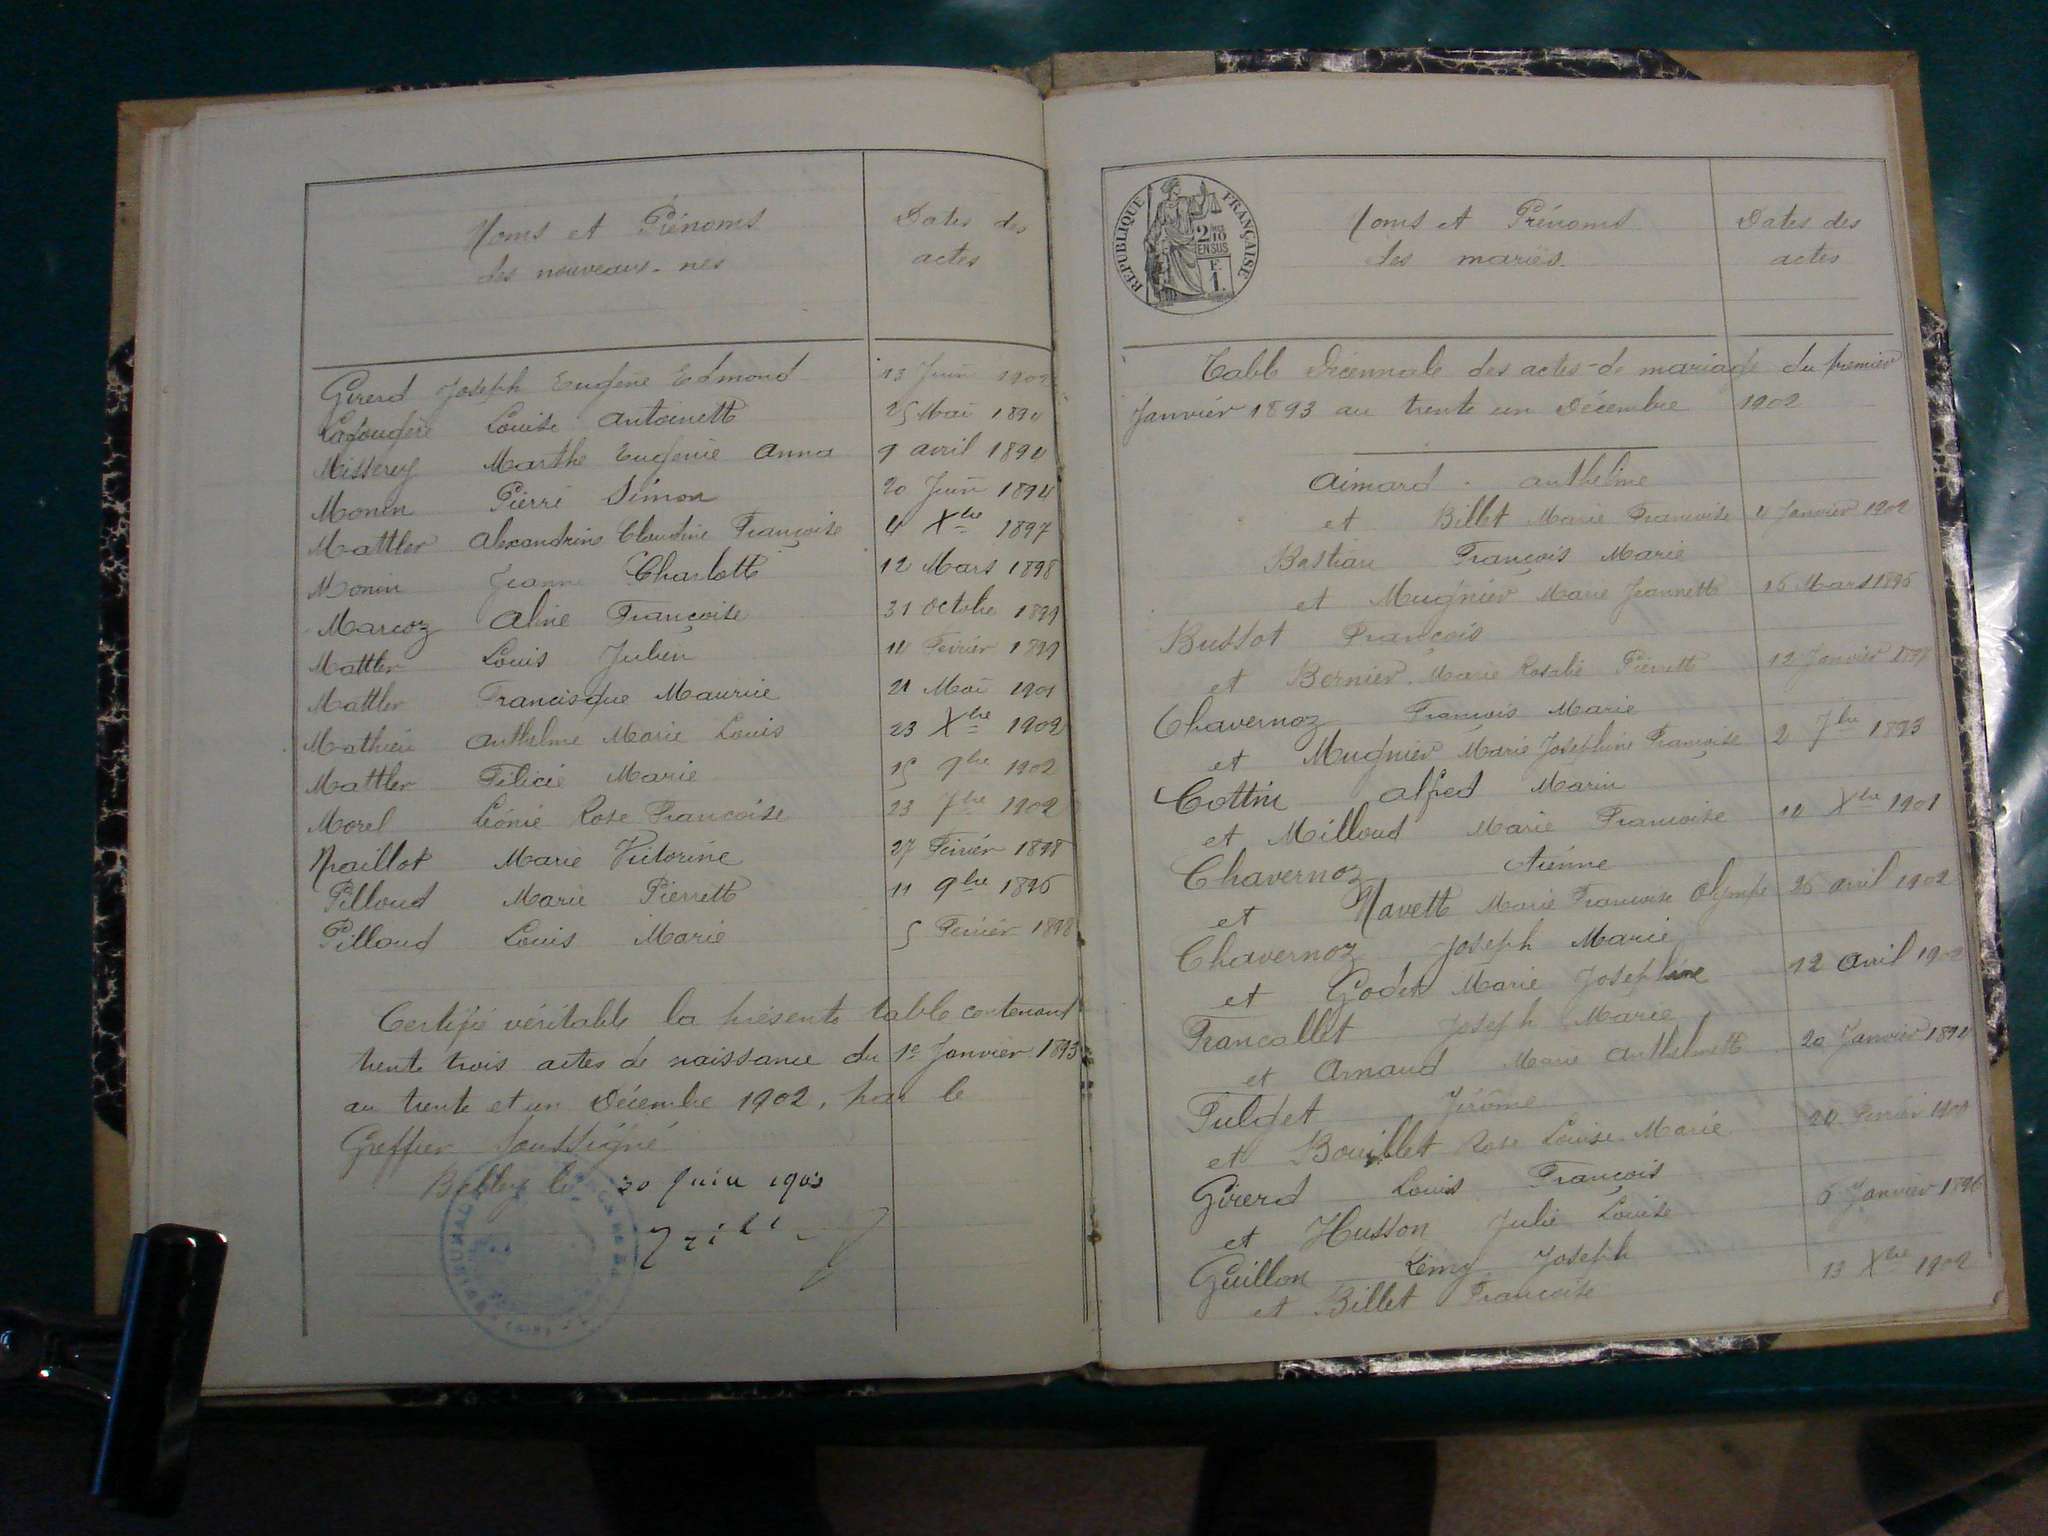 Noms et Prénoms
des nouveaux-nés
Dates des
actes
Girerd Joseph Eugène Edmond 13 Juin 1902
Lafougère Louise Antoinette 25 Mai 1894
Misserey Marthe Eugénie Anna 9 avril 1894
Monin Pierre Simon 20 Juin 1894
Mattler Alexandrine Claudine Françoise 4 Xbre 1897
Monin Jeanne Charlotte 12 Mars 1898
Marcoz Aline Françoise 31 Octobre 1899
Mattler Louis Julien 10 Février 1899
Mattler Francisque Maurice 21 Mai 1901
Mathieu Anthelme Marie Louis 23 Xbre 1902
Mattler Félicie Marie 15 9bre 1902
Morel Léonie Rose Françoise 23 7bre 1902
Naillot Marie Victorine 27 Février 1898
Pilloud Marie Pierrette 11 9bre 1896
Pilloud Louis Marie 5 Février 1898
Certifié véritable la présente table contenant
trente trois actes de naissance du 1er Janvier 1893
au trente et un Décembre 1902, par le
Greffier soussigné
Belley le 30 Juin 1903
RÉPUBLIQUE FRANÇAISE
2/10
EN SUS
F
1.
Noms et Prénoms
des mariés
Dates des
actes
Table Décennale des actes de mariage du premier
Janvier 1893 au trente un Décembre 1902
Aimard Anthelme
et Billet Marie Françoise 4 Janvier 1902
Bastian François Marie
et Mugnier Marie Jeannette 16 Mars 1896
Bussot François
et Bernier Marie Rosalie Pierrette 12 Janvier
Chavernoz François Marie
et Mugnier Marie Joséphine Françoise 2 7bre 1893
Cottin Alfred Marin
et Milloud Marie Françoise 10 Xbre 1901
Chavernoz Etiénne
et Navette Marie Françoise Olympe 26 avril 1902
Chavernoz Joseph Marie
et Godet Marie Josephine 12 Avril 1902
Francallet Joseph Marie
et Arnaud Marie Anthelmette 20 Janvier 1894
Fulget Jérôme
et Bouillet Rose Louise Marie 20 Février
Girerd Louis François
et Husson Julie Louise 6 Janvier 1896
Guillon Rémy Joseph
et Billet Françoise 13 Xbre 1902